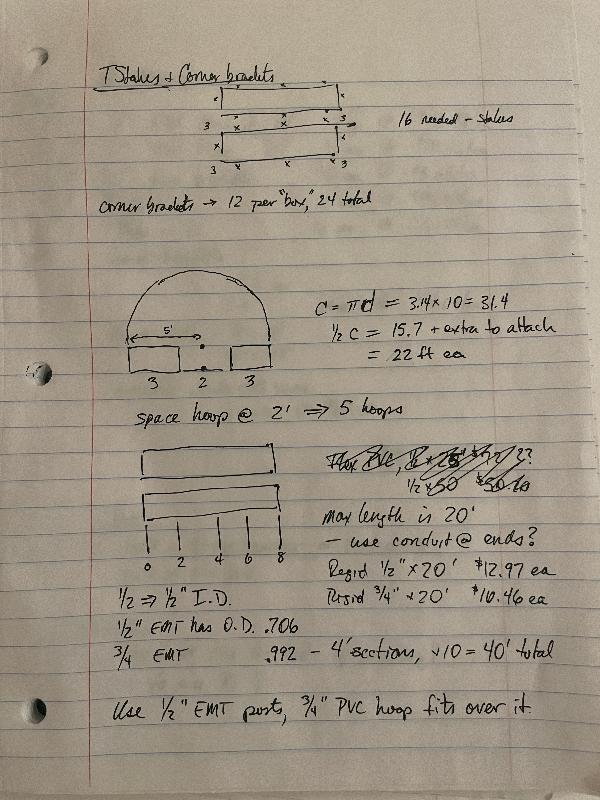 T Stakes + Corner brackets
3 3
16 needed - stakes
3 3
corner brackets → 12 per "box," 24 total
C = πd = 3.14 x 10 = 31.4
½ C = 15.7 + extra to attach
= 22 ft ea
5'
3 2 3
space hoop @ 2' ⇒ 5 hoops
Flex PVC, ??
½ x 50 $50
max length is 20'
- use conduit @ ends?
0 2 4 6 8
Regid ½" x 20' $12.97 ea
½ ⇒ ½" I.D.
Rigid ¾" x 20' $16.46 ea
½" EMT has O.D. .706
¾ EMT .992 - 4' sections, x10 = 40' total
Use ½" EMT posts, ¾" PVC hoop fits over it